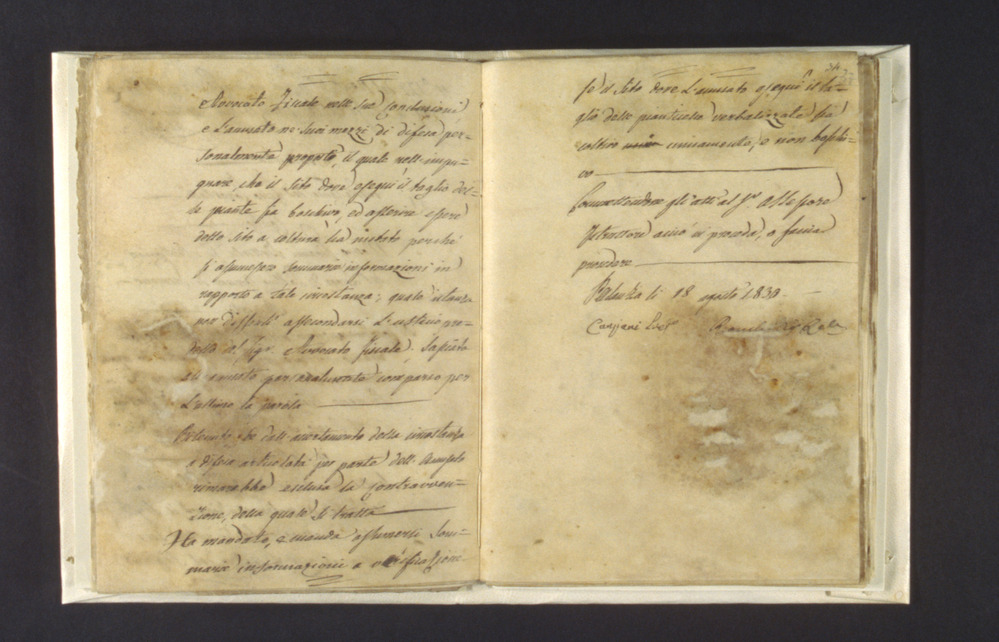 Avvocato Fiscale nelle sue Conclusioni
e l'accusato ne' suoi mezzi di difesa per-
sonalmente proposti, il quale nell'impu-
gnare, che il sito dove eseguì il taglio del-
le piante sia boschivo, ed asserire essere
detto sito a coltura, ha instato perchè
si assumessero sommarie informazioni in
rapporto a tale circostanza; quale instanza
non dissentì assecondarsi l'ufficio pre-
detto del Sigr. Avvocato fiscale. Sentito
l'accusato personalmente comparso per
l'ultimo la parola
Ritenuto che dall'accertamento della circostanza
e difese articolate per parte dell'Accusato
rimarrebbe esclusa la Contravven-
zione, della quale si tratta
Ha mandato, e manda assumersi Som-
marie informazioni a verificazione
se il sito dove l'accusato eseguì il ta-
glio delle pianticelle verbalizzate sia
coltivo unicamente, e non boschi-
vo
Commettendone gli atti al Sr Assessore
Istruttore acciò vi proceda, o faccia
procedere
li 18 agosto 1830